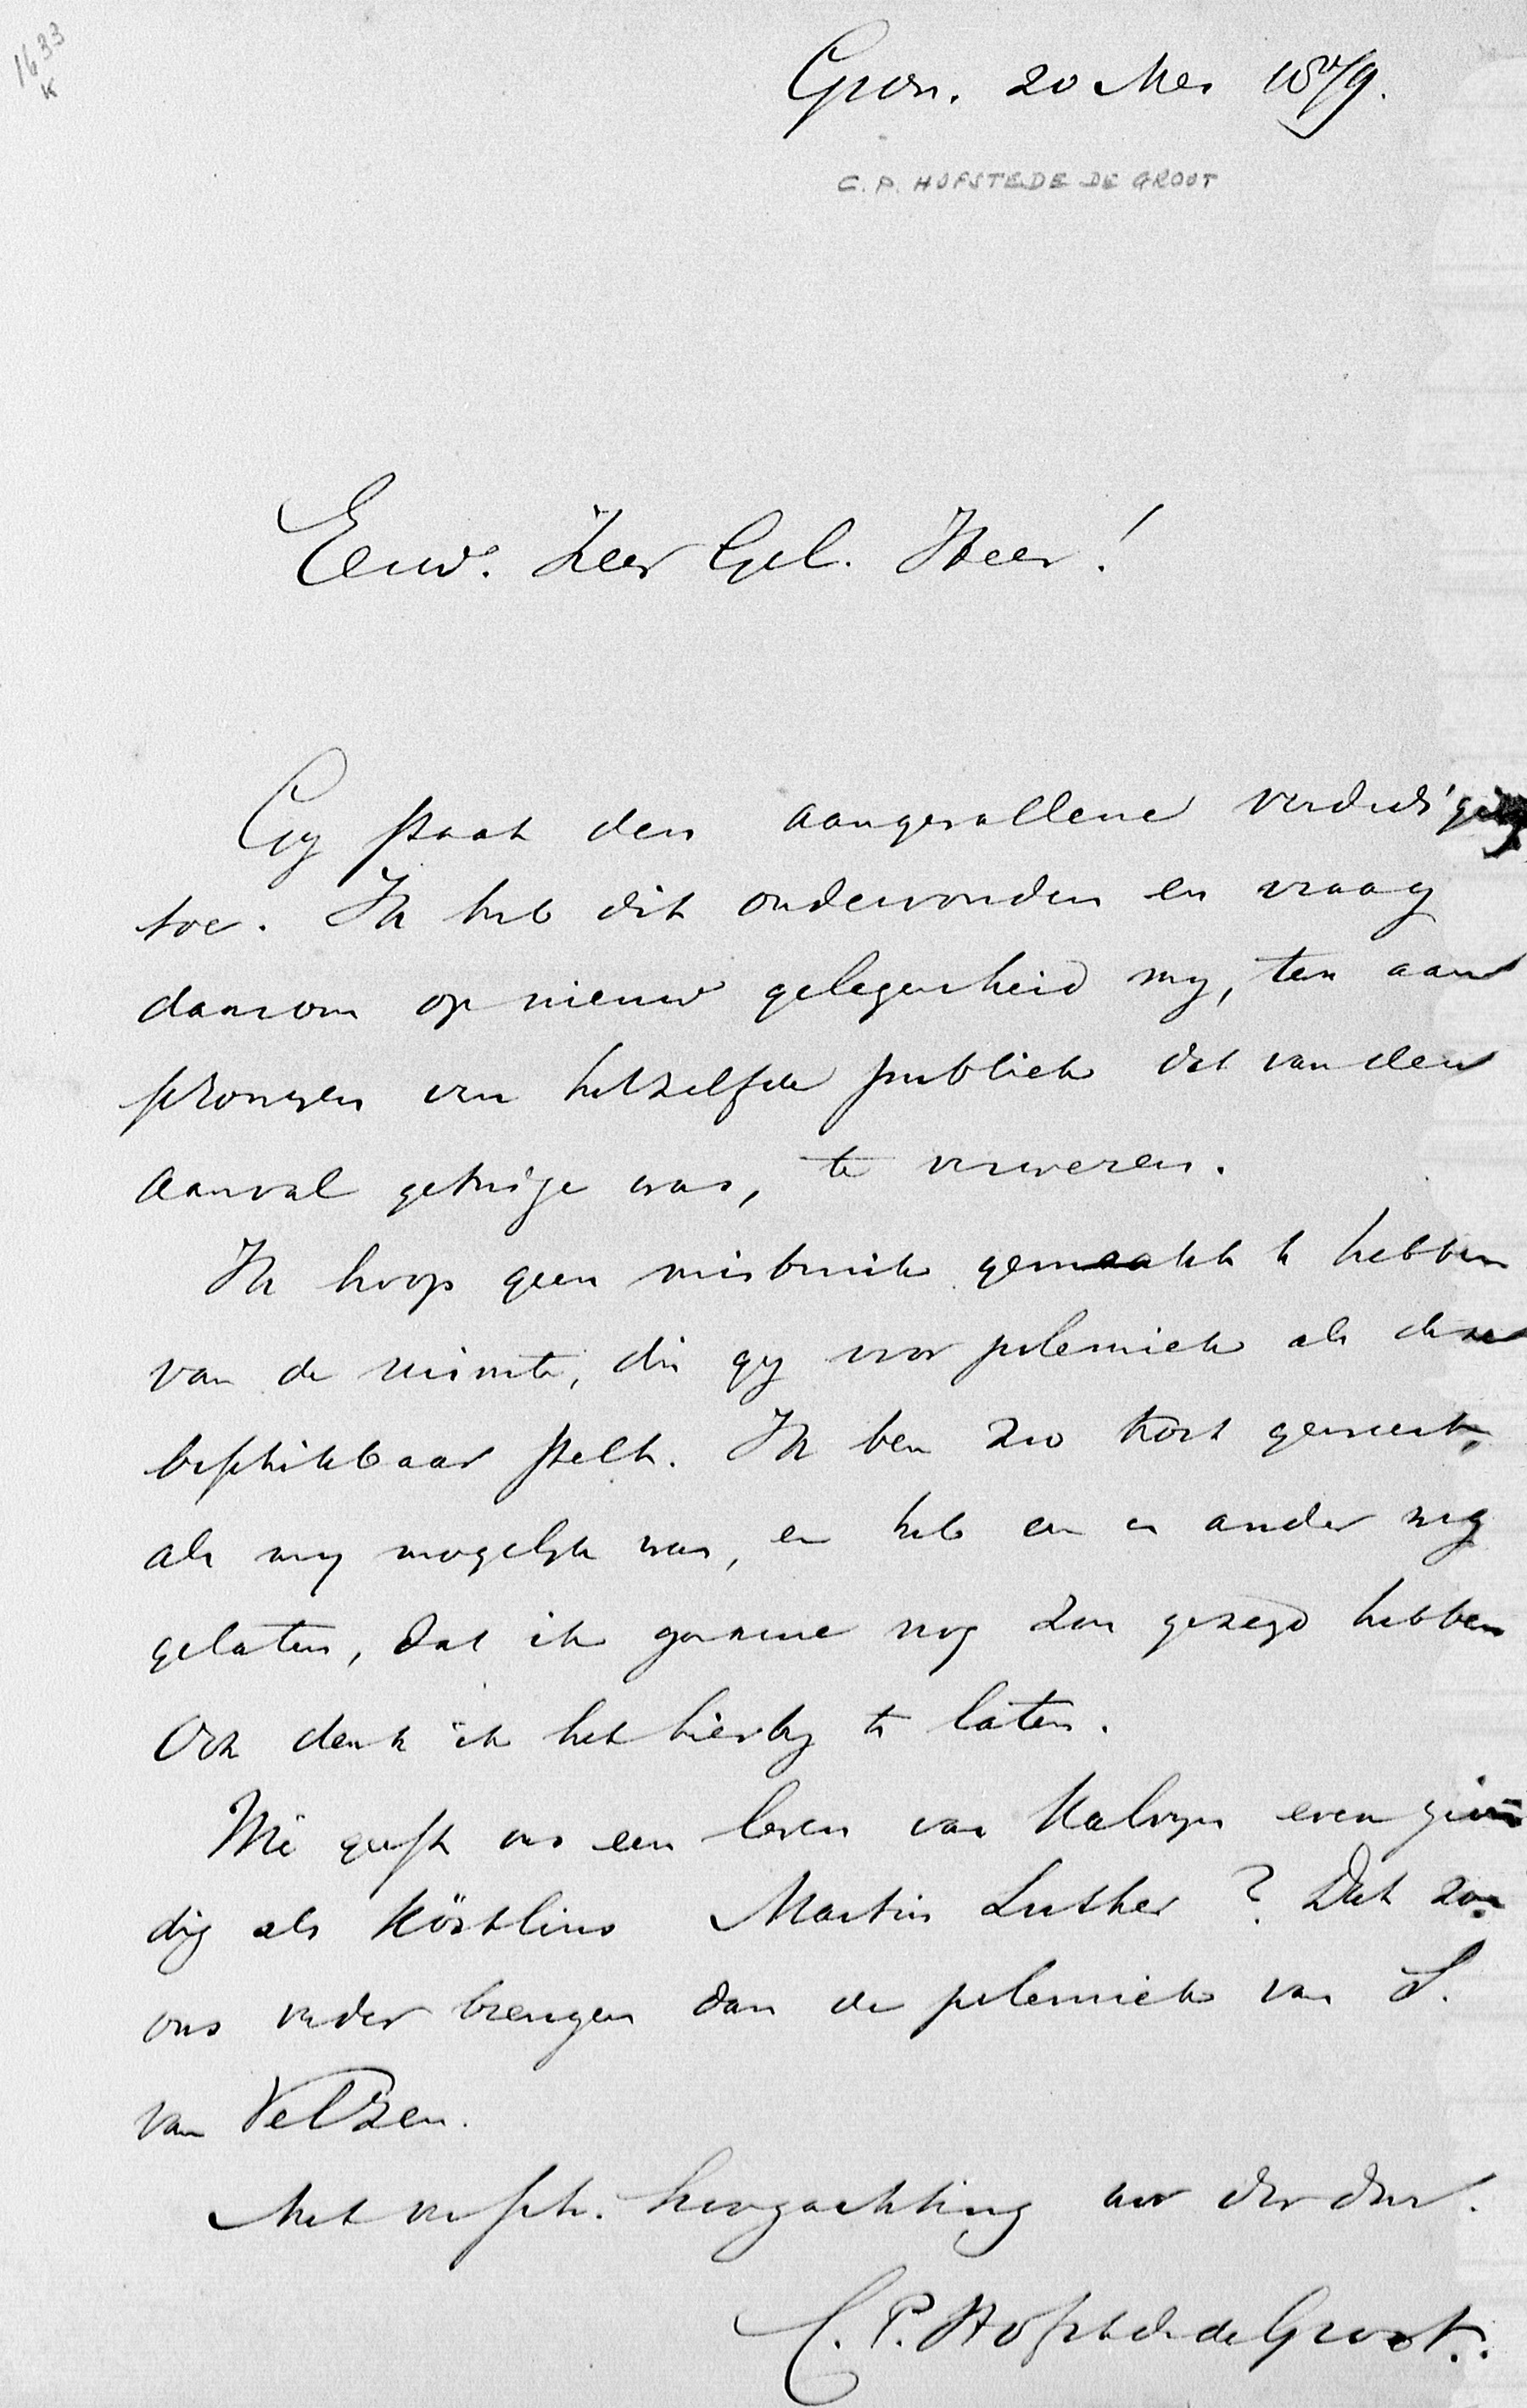 1633
K
Gron. 20 Mei 1879.
C. P. HOFSTEDE DE GROOT
Eerw. Zeer Gel. Heer!
Gy staat den aangevallene verdediging
toe. Ik heb dit ondervonden en vraag
daarom op nieuw gelegenheid my, ten aan
schouwen van hetzelfde publiek dat van den
aanval getuige was, te verweren.
Ik hoop geen misbruik gemaakt te hebben
van de ruimte, die gy voor polemiek als deze
beschikbaar stelt. Ik ben zoo kort geweest,
als my mogelyk was, en heb een en ander weg
gelaten, dat ik gaarne nog zou gezegd hebben
Ook denk ik het hierby te laten.
Wie geeft ons een leven van Kalvyn even grin
dig als Köstlins Martin Luther? Dat zou
ons verder brengen dan de polemiek van S.
van Velzen.
Met versch. hoogachting uw dw dnr.
C. P. Hofstede de Groot.